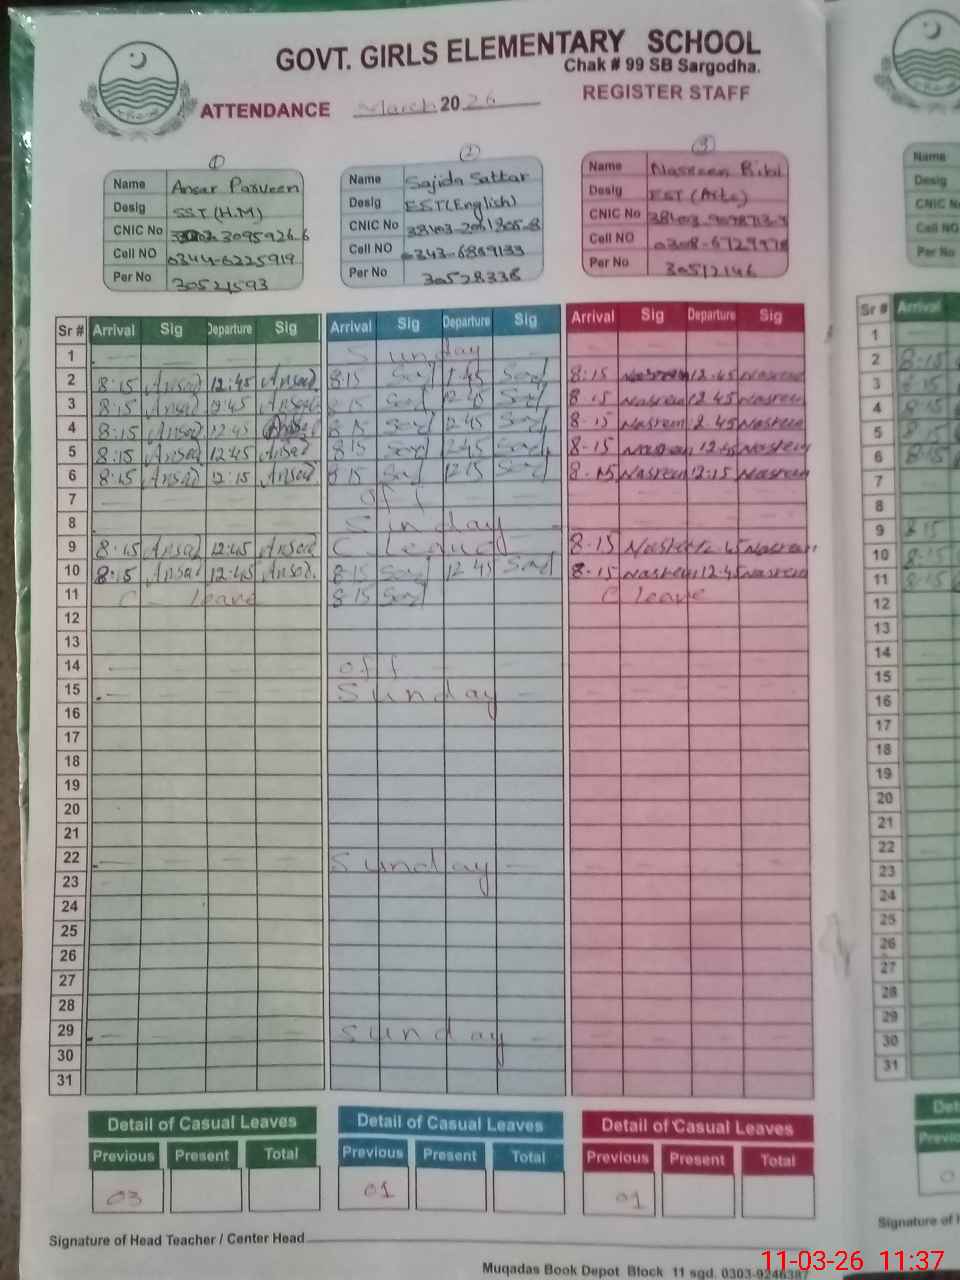 GOVT. GIRLS ELEMENTARY SCHOOL
Chak # 99 SB Sargodha.
ATTENDANCE March 2026 REGISTER STAFF
① ② ③
Name Ansar Parveen Name Sajida Sattar Name Nasreen Bibi Name
Desig SST (H.M) Desig EST (English) Desig EST (Arts) Desig
CNIC No CNIC No CNIC No CNIC No
Cell NO 0344-6225919 Cell NO 0343-6869133 Cell NO 0308-6729978 Cell NO
Per No 30521593 Per No 30528338 Per No 30512146 Per No
Sr # Arrival Sig Departure Sig Arrival Sig Departure Sig Arrival Sig Departure Sig Sr # Arrival
1 Sunday 1
2 8:15 Ansad 12:45 Ansad 8:15 Saj 12:45 Saj 8:15 Nasreen 12:45 Nasreen 2 8:15
3 8:15 Ansad 12:45 Ansad 8:15 Saj 12 45 Saj 8:15 Nasreen 12.45 Nasreen 3 8:15
4 8:15 Ansad 12 45 8 15 Saj 12 45 Saj 8-15 Nasreen 12.45 Nasreen 4 8:15
5 8:15 Ansad 12 45 Ansad 8 15 Saj 12 45 Saj 8-15 Nasreen 12.45 Nasreen 5 8:15
6 8:15 Ansad 12:15 Ansad 8 15 Saj 12 15 Saj 8-15 Nasreen 12:15 Nasreen 6 8:15
7 off 7
8 Sunday 8
9 8:15 Ansad 12:45 Ansad C Leave 8-15 Nasreen 12.45 Nasreen 9 8:15
10 8:15 Ansad 12:45 Ansad 8 15 Saj 12 45 Saj 8-15 Nasreen 12.45 Nasreen 10 8:15
11 C - leave 8 15 Saj C leave 11 8:15
12 12
13 13
14 off 14
15 Sunday 15
16 16
17 17
18 18
19 19
20 20
21 21
22 Sunday 22
23 23
24 24
25 25
26 26
27 27
28 28
29 Sunday 29
30 30
31 31
Detail of Casual Leaves Detail of Casual Leaves Detail of Casual Leaves
Previous Present Total Previous Present Total Previous Present Total
03 01 01
Signature of Head Teacher / Center Head
Muqadas Book Depot Block 11 sgd. 0303-9246387
11-03-26 11:37